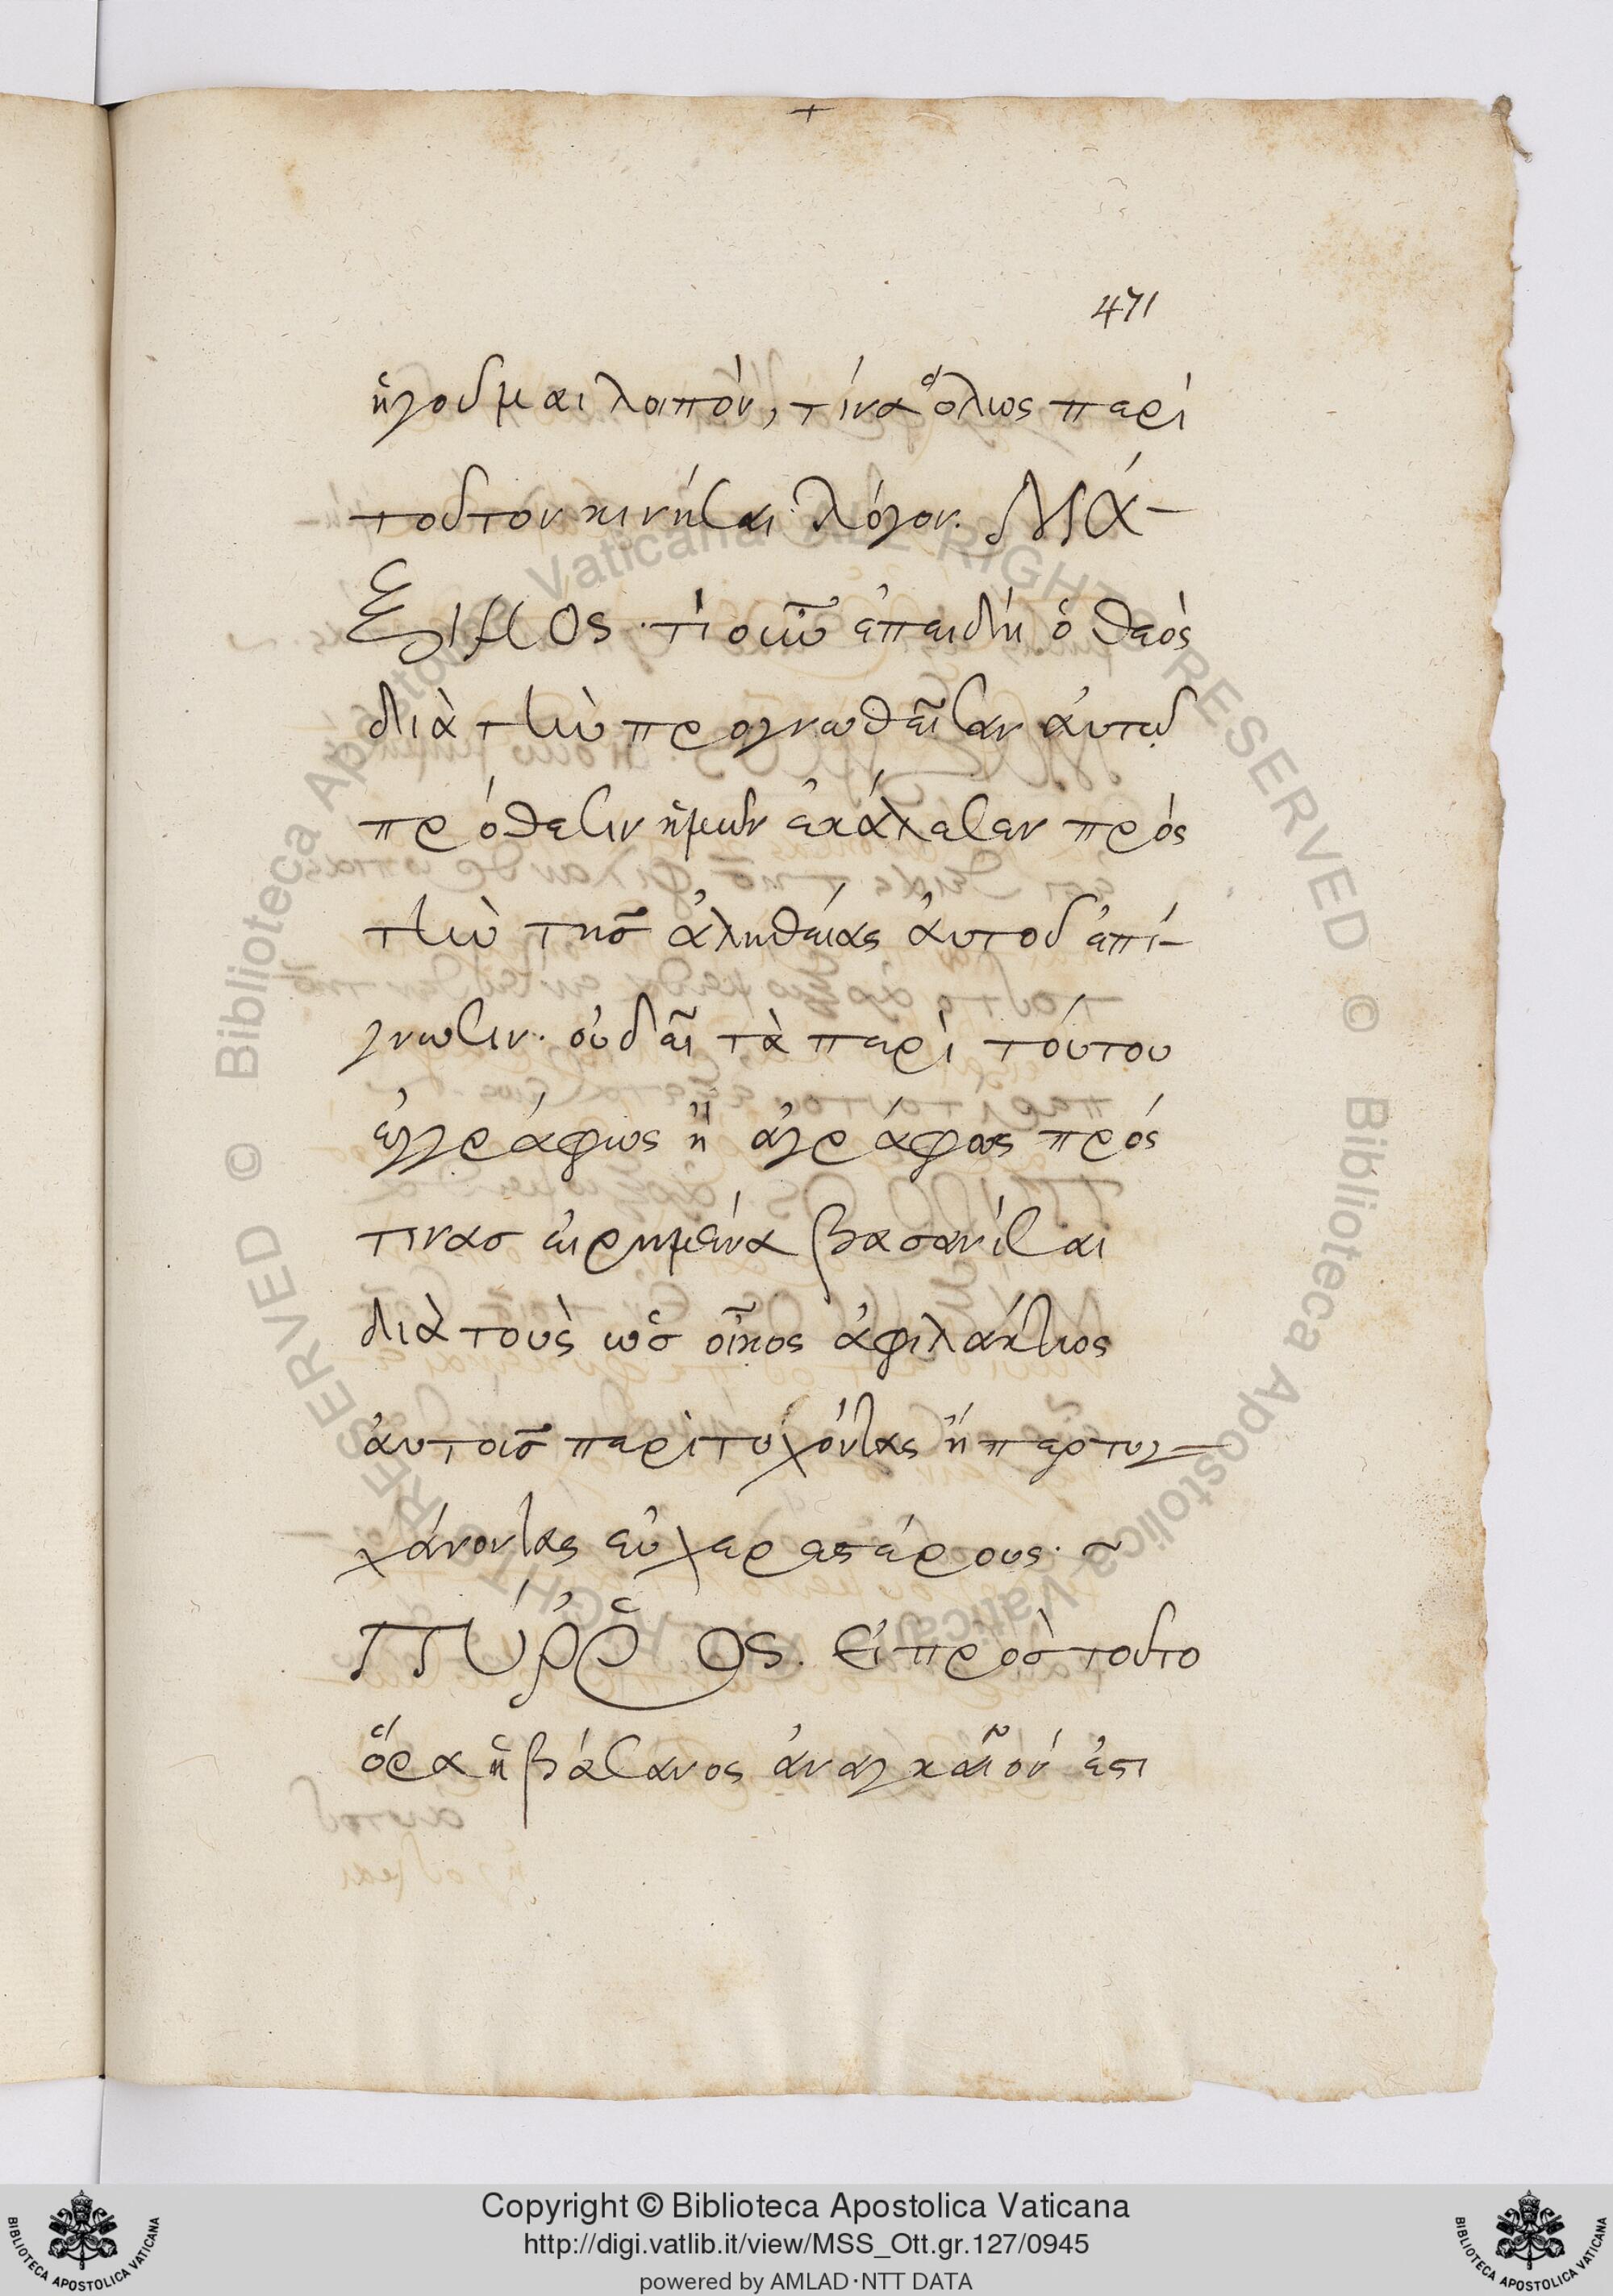 471
ἡγοῦμαι λοιπόν, τίνα ὅλως περὶ
τοῦτον κινῆσαι λόγον. ΜΆ-
ξιμος· τί οὖν ἐπειδὴ ὁ θεὸς
διὰ τὴν προγνωθεῖσαν αὐτῷ
πρόθεσιν ἡμῶν ἐκάλεσεν πρὸς
τὴν τῆς ἀληθείας αὐτοῦ ἐπί-
γνωσιν· οὐ δεῖ τὰ περὶ τούτου
ἐγγράφως ἢ ἀγράφως πρός
τινας εἰρημένα βασανίσαι
διὰ τοὺς ὡς οἶκος ἀφιλάκτως
αὐτοῖς περιτυχόντας ἢ περτυγ-
χάνοντας εὐχερεστέρους·
ΠΎΡΡΟΣ. Εἰ πρὸς τοῦτο
ὅρα ἡ βάσανος ἀναγκαῖόν ἐστι
Copyright © Biblioteca Apostolica Vaticana
http://digi.vatlib.it/view/MSS_Ott.gr.127/0945
powered by AMLAD·NTT DATA
BIBLIOTECA APOSTOLICA VATICANA
BIBLIOTECA APOSTOLICA VATICANA